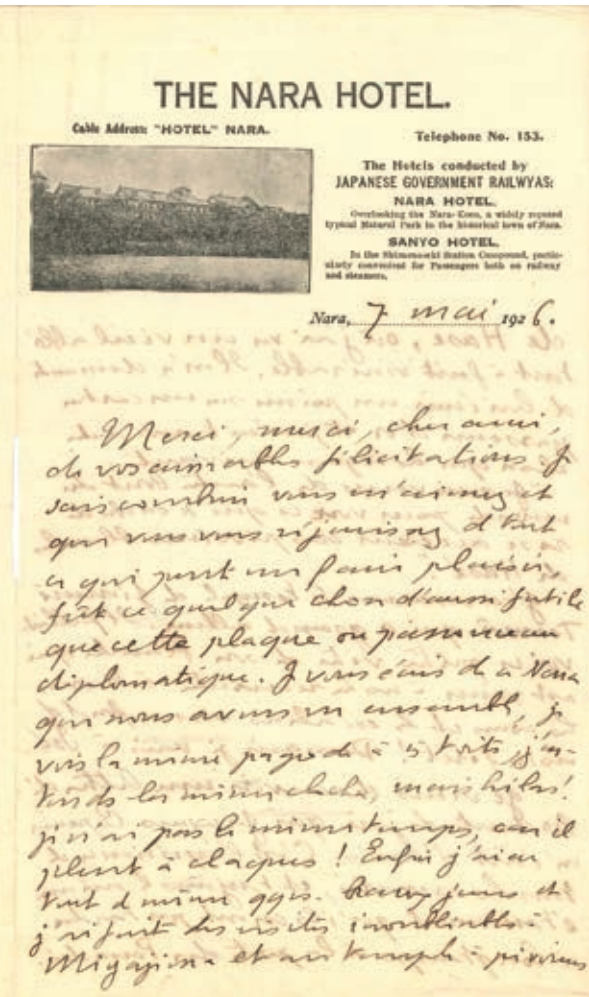 THE NARA HOTEL.
Cable Address: "HOTEL" NARA.
Telephone No. 153.
The Hotels conducted by
JAPANESE GOVERNMENT RAILWYAS:
NARA HOTEL.
Overlooking the Nara-Koen, a widely reputed
typical Natural Park in the historical town of Nara.
SANYO HOTEL.
In the Shimonoseki Station Compound, partic-
ularly convenient for Passengers both on railway
and steamers.
Nara, 7 mai 1926.
Merci, merci, cher ami,
de vos aimables félicitations. Je
sais combien vous m'aimez et
que vous vous réjouissez de tout
ce qui peut me faire plaisir,
fût ce quelque chose d'aussi futile
que cette plaque ou passementerie
diplomatique. Je vous écris de ce Nara
que nous avons vu ensemble, je
vois la même pagode à 5 toits, j'en-
tends la même cloche, mais hélas!
je n'ai pas le même temps, car il
pleut à claques! Enfin j'ai eu
tout de même qqs. beaux jours et
j'ai fait des visites inoubliables à
Miyajima et au temple à pivoines